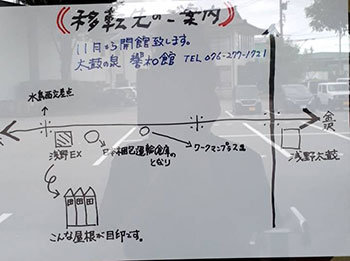 移転先のご案内
11月から開館致します。
太鼓の泉 響和館 TEL 076-277-1721
水島西交差点
金沢
浅野EX
運輸倉庫の
となり
ワークマンプラス
浅野太鼓
こんな屋根が目印です。